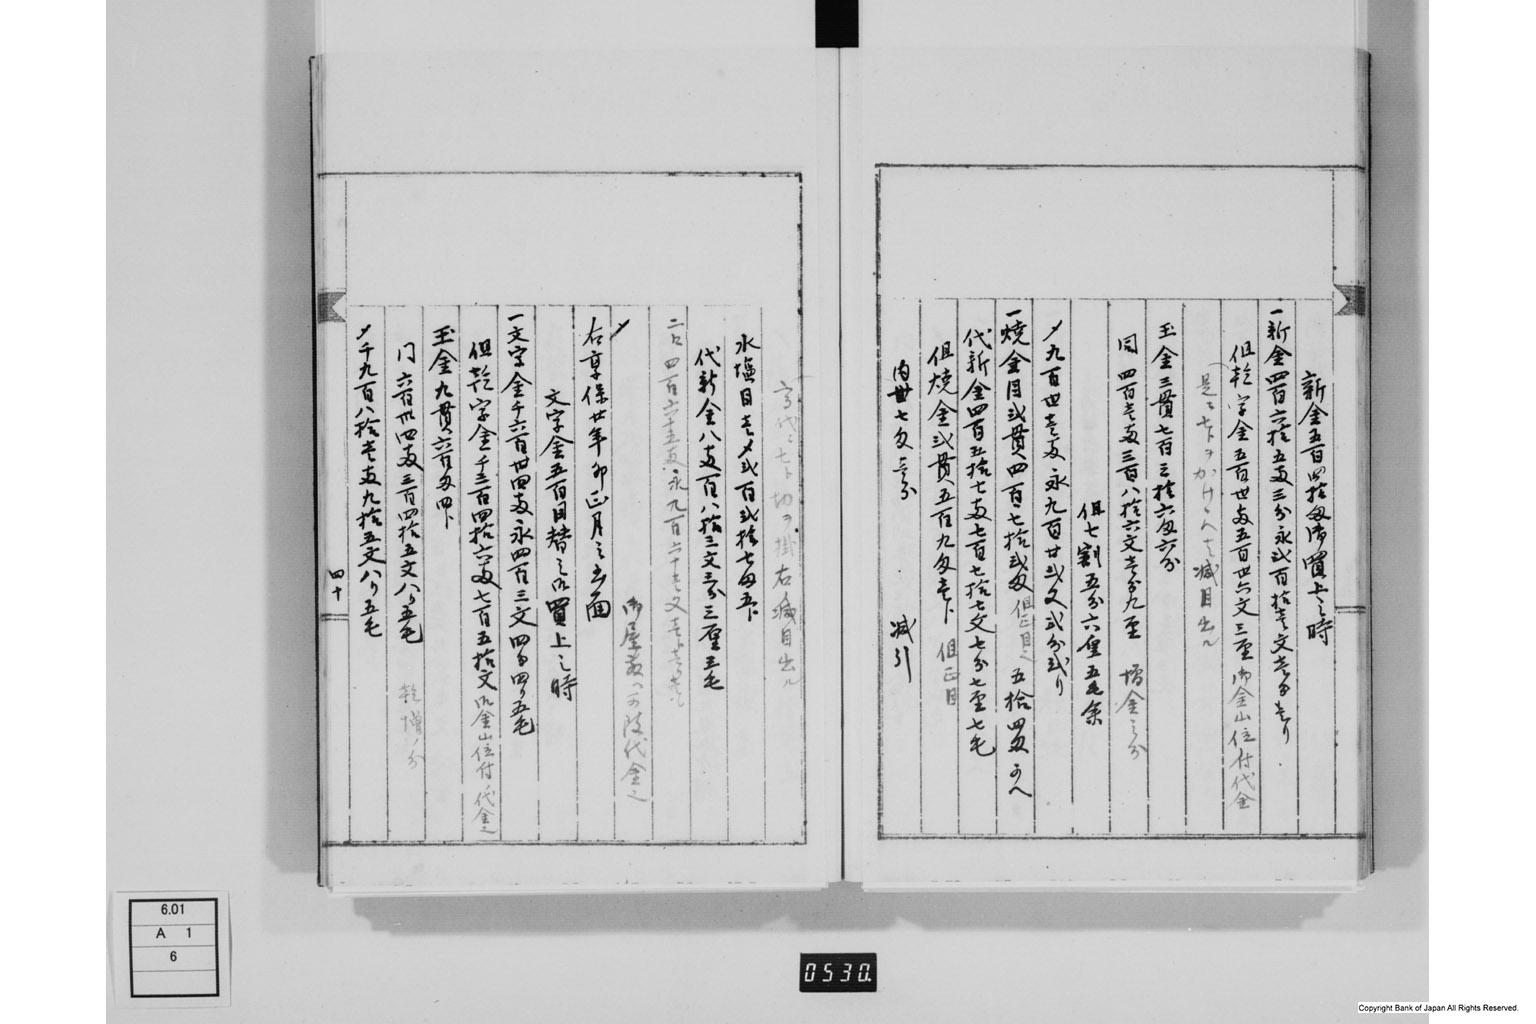 新金五百四拾匁御買上之時
一新金四百六拾五両三分永弐百拾壱文壱分壱り
但乾字金五百世両五百世六文三厘御金山位付代金
是ニ七トヲかけ候ヘハ減目出ル
玉金三貫七百三拾六匁六分
同四百壱両三百八拾六文壱分九厘 増金之分
但七割五分六厘五毛余
〆九百世壱両永九百廿弐文弐分弐り
一焼金目弐貫四百七拾弐匁但正目也五拾四両
代新金四百五拾七両七百七拾七文七分七厘七毛
但焼金弐貫五百九匁壱卜 但正目
内卅七匁壱分 減引
七ト切ヲ掛右減目出ル
水塩目壱〆弐百弐拾七匁五卜
代新金八両百八拾三文三分三厘三毛
二口四百六十五両永九百六十壱文
〆 代金也
右享保廿年卯正月之書面
文字金五百目替之御買上之時
一文字金千六百世四両永四百三文四分四り五毛
但乾字金千三百四拾六両七百五拾文御金山位付ノ代金也
玉金九貫六百匁四卜
同六百世四両三百四拾五文八り五毛 乾増ノ分
〆千九百八拾壱両九拾五文八り五毛
四十
6.01
A 1
6
0530.
Copyright Bank of Japan All Rights Reserved.